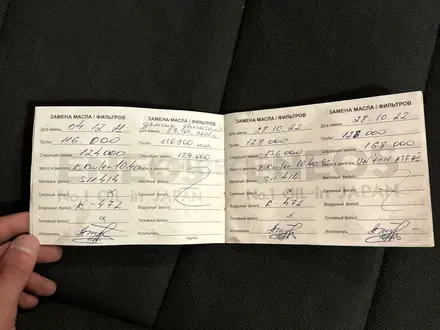 ЗАМЕНА МАСЛА / ФИЛЬТРОВ
Дата замены 04.12.21
Пробег 116 000
Следующая замена 124000
10w40
Масляный фильтр SH 414
Салонный фильтр x
Воздушный фильтр K 472
Топливный фильтр x
Исполнитель
ЗАМЕНА МАСЛА / ФИЛЬТРОВ
замена двигателя
Пробег 116 900 км
Следующая замена 124.000
Масляный фильтр
Салонный фильтр
Воздушный фильтр
Топливный фильтр
Исполнитель
подпись
ЗАМЕНА МАСЛА / ФИЛЬТРОВ
Дата замены 28 10.22
Пробег 128 000
Следующая замена 136000
10w40
Масляный фильтр SH 414
Салонный фильтр x
Воздушный фильтр K 472
Топливный фильтр x
Исполнитель
ЗАМЕНА МАСЛА / ФИЛЬТРОВ
Дата замены 28.10.22
Пробег 128 000
Следующая замена 168 000
Масляный фильтр
Салонный фильтр
Воздушный фильтр
Топливный фильтр
Исполнитель
No.1 OIL IN JAPAN